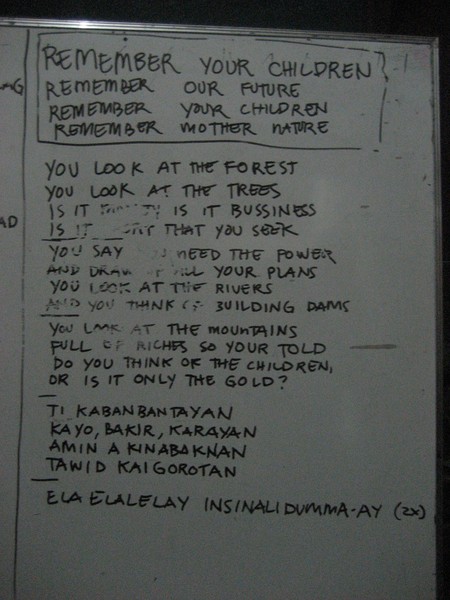 REMEMBER YOUR CHILDREN
REMEMBER OUR FUTURE
REMEMBER YOUR CHILDREN
REMEMBER MOTHER NATURE
YOU LOOK AT THE FOREST
YOU LOOK AT THE TREES
IS IT IS IT BUSSINESS
IS IT THAT YOU SEEK
YOU SAY NEED THE POWER
AND DRAW YOUR PLANS
YOU LOOK AT THE RIVERS
AND YOU THINK OF BUILDING DAMS
YOU LOOK AT THE MOUNTAINS
FULL OF RICHES SO YOUR TOLD
DO YOU THINK OF THE CHILDREN,
OR IS IT ONLY THE GOLD?
TI KABANBANTAYAN
KAYO, BAKIR, KARAYAN
AMIN A KINABAKNAN
TAWID KAIGOROTAN
ELA ELALELAY INSINALIDUMMA-AY (2X)